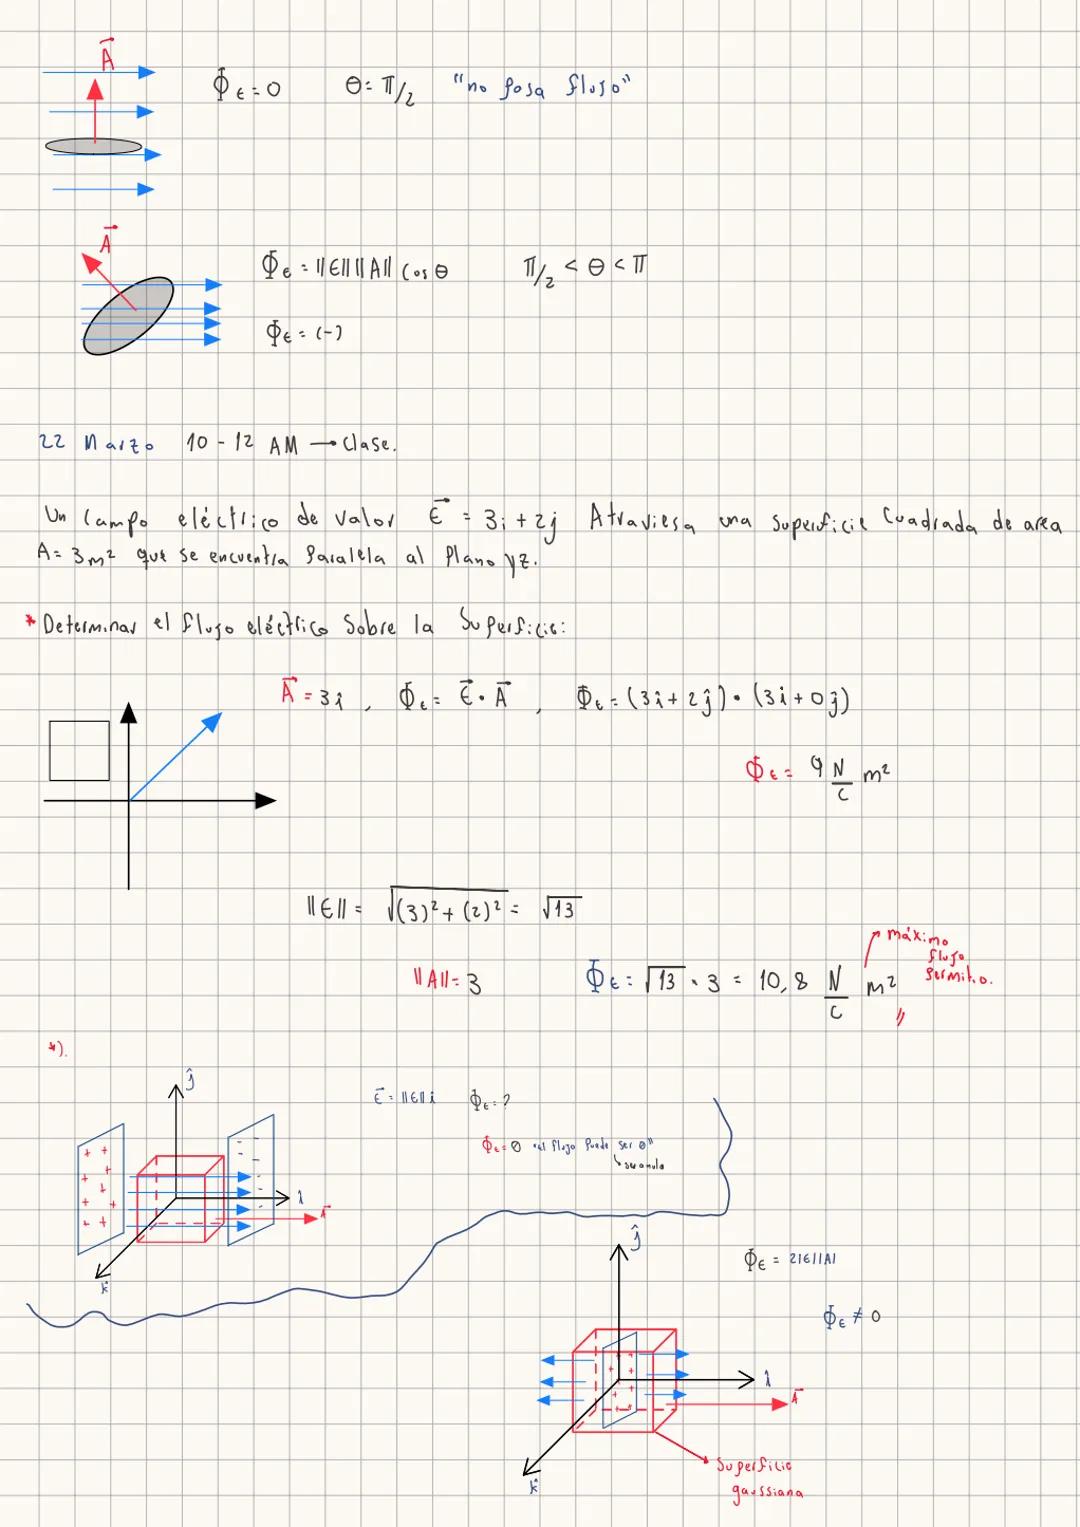 A⃗
Φε = 0 θ = π/2 "no pasa flujo"
A⃗
Φε = ||E|| ||A|| Cos θ π/2 < θ < π
Φε = (-)
22 Marzo 10 - 12 AM → Clase.
Un Campo eléctrico de valor E⃗ = 3i + 2j Atraviesa una superficie Cuadrada de area
A = 3m² que se encuentra Paralela al Plano yz.
* Determinar el flujo eléctrico Sobre la Superficie:
A⃗ = 3î , Φε = E⃗ · A⃗ , Φε = (3î + 2ĵ) · (3î + 0ĵ)
Φε = 9 N/C m²
||E|| = √((3)² + (2)²) = √13
máximo
flujo
permitio.
||A|| = 3 Φε = √13 · 3 = 10,8 N/C m² //
*).
ĵ
E⃗ = ||E|| î Φε = ?
Φε = 0 "el flujo Puede ser 0"
↳ se anula
+ + + + + + + + + +
- - - - - -
î
A⃗
k̂
ĵ
Φε = 2|E||A|
Φε ≠ 0
î
A⃗
k̂
Superficie
gaussiana